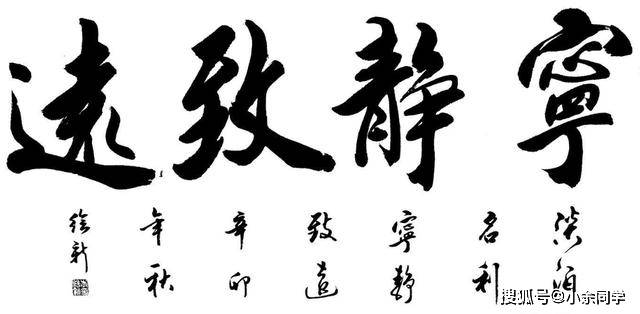 寧静致遠
淡泊
名利
寧静
致遠
辛卯
年秋
徐新
搜狐号@小余同学